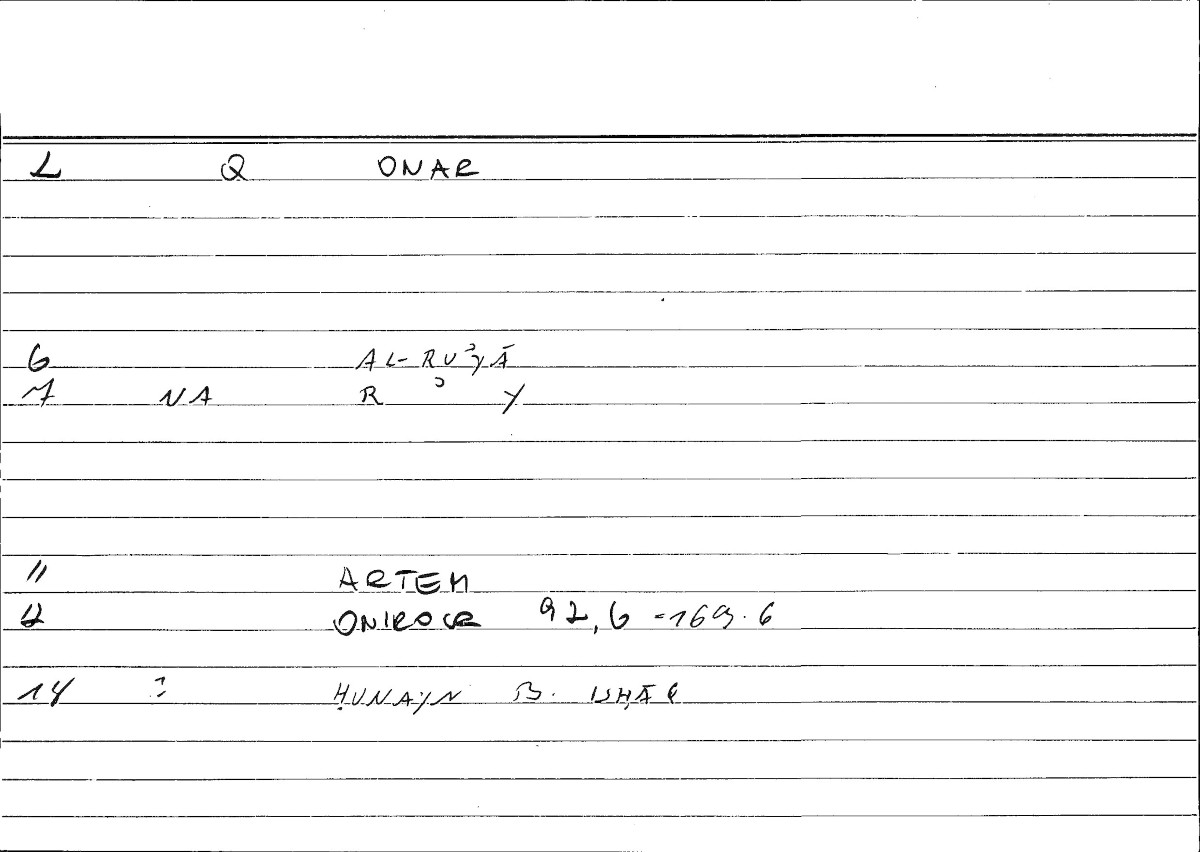 2 Q ONAR
6 AL-RUʾYĀ
7 NA R ʾ Y
11 ARTEM
12 ONIROCR 92,6 = 169.6
14 : ḤUNAYN B. ISḤĀQ